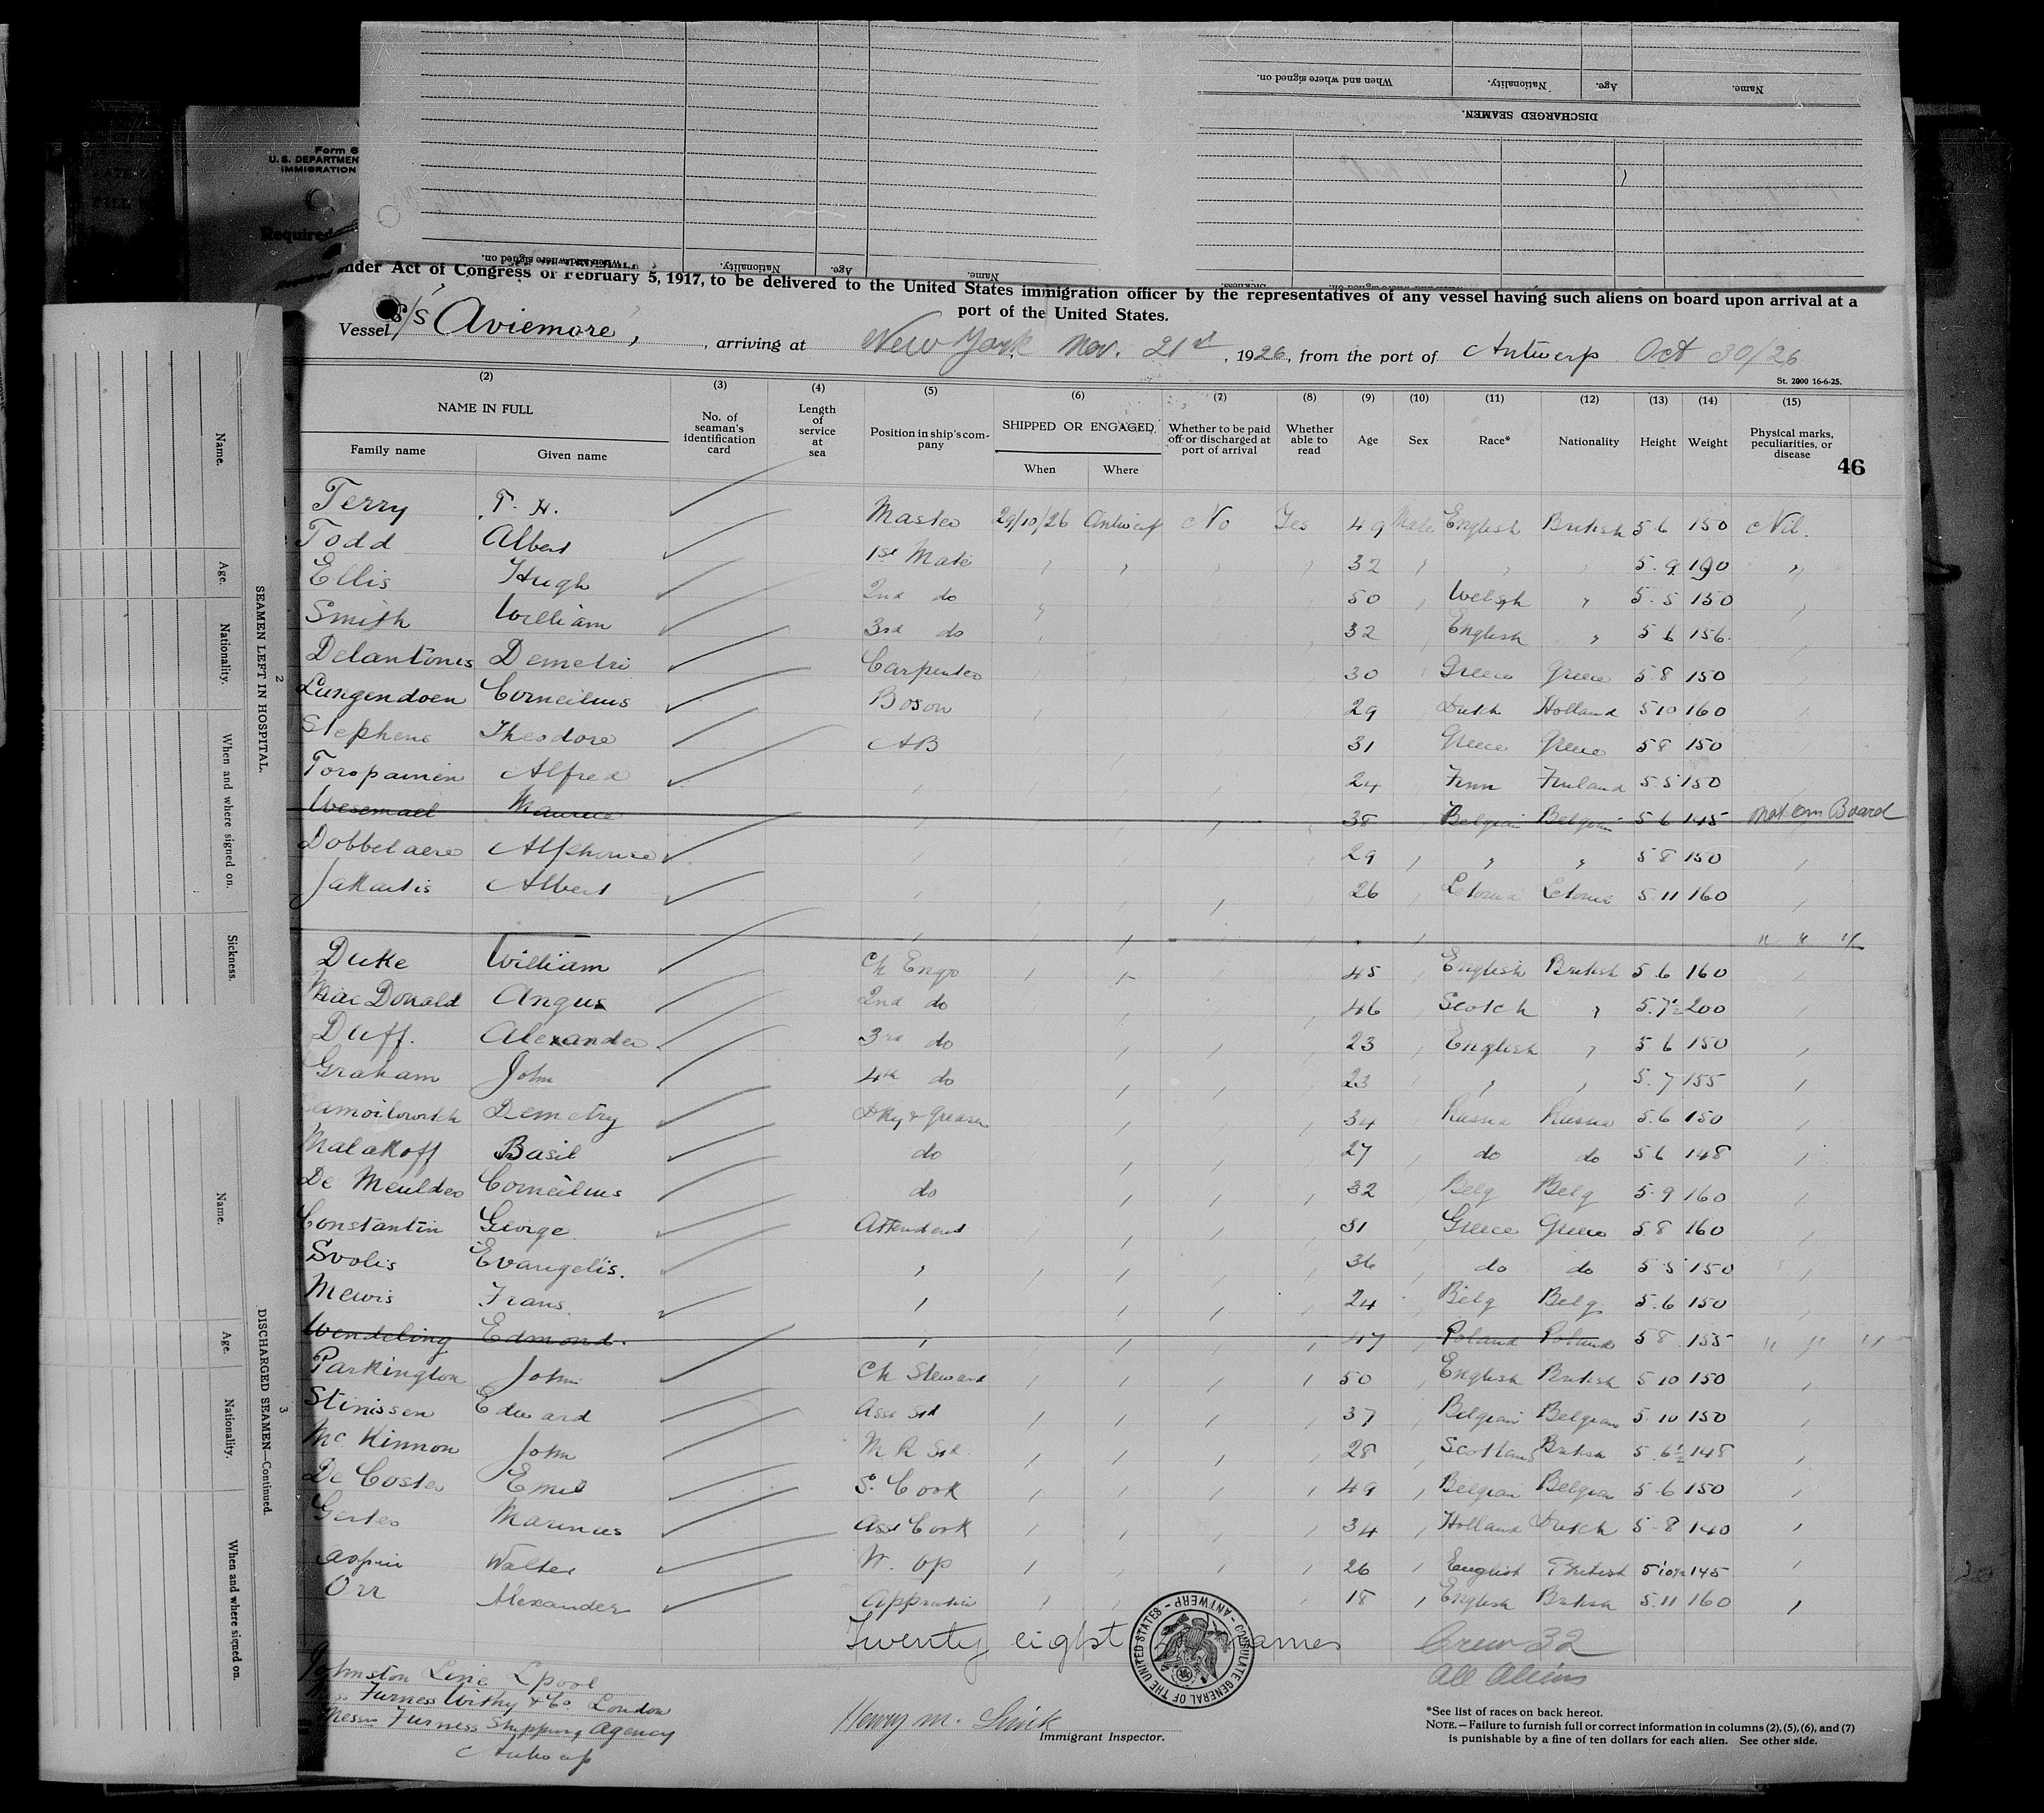 Form 6
U. S. DEPARTMEN
IMMIGRATION
Required
When and where signed on.
Nationality.
Age.
Name.
DISCHARGED SEAMEN.
Nationality.
Age.
Name.
under Act of Congress of February 5, 1917, to be delivered to the United States immigration officer by the representatives of any vessel having such aliens on board upon arrival at a
port of the United States.
Vessel S/S Aviemore, arriving at New York Nov. 21st, 1926, from the port of Antwerp Oct 30/26
St. 2000 16-6-25.
(2) (3) (4) (5) (6) (7) (8) (9) (10) (11) (12) (13) (14) (15)
NAME IN FULL
Family name Given name
No. of seaman's identification card
Length of service at sea
Position in ship's company
SHIPPED OR ENGAGED
When Where
Whether to be paid off or discharged at port of arrival
Whether able to read
Age Sex Race* Nationality Height Weight
Physical marks, peculiarities, or disease
46
Terry T. H. Master 29/10/26 Antwerp No Yes 49 Male English British 5 6 150 Nil.
Todd Albert 1st Mate 32 5. 9 190 "
Ellis Hugh 2nd do 50 Welsh " 5. 5 150
Smith William 3rd do 32 English " 5 6 156.
Delantonis Demetri Carpenter 30 Greece Greece 5 8 150
Lungendoen Corneilius Boson 29 Dutch Holland 5 10 160
Stephens Theodore AB 31 Greece Greece 5 8 150
Toropainen Alfred 24 Finn Finland 5.5 150
Wesemael Maurice 38 Belgian Belgian 5 6 145 Not on Board
Dobbelaere Alphonse 29 " " 5 8 150
Jakartis Albert 26 5.11 160
" " "
Duke William Ch Engr 45 English British 5.6 160
MacDonald Angus 2nd do 46 Scotch " 5.7½ 200
Duff. Alexander 3rd do 23 English " 5 6 150
Graham John 4th do 23 " " 5. 7 155
Demetry Dky & Greaser 34 Russia Russia 5.6 150
Malakoff Basil do 27 do do 5 6 148
De Meulder Corneilius do 32 Belg Belg 5.9 160
Constantin George Attendant 31 Greece Greece 5.8 160
Svolis Evangelis. " 36 do do 5 5 150
Mewis Frans " 24 Belg Belg 5.6 150
Wendeling Edmond. " 47 Poland Poland 5 8 155 " " "
Parkington John Ch Steward 50 English British 5 10 150
Stinissen Edward Asst Std 37 Belgian Belgian 5.10 150
Mc Kinnon John M R Std 28 Scotland British 5. 6½ 148
De Coster Emil S. Cook 49 Belgian Belgian 5 6 150
Marinus Asst Cook 34 Holland Dutch 5-8 140
Walter W. Op 26 English British 145
Orr Alexander Apprentice 18 English British 5.11 160
Twenty eight names
Crew 32
All Aliens
CONSULATE GENERAL OF THE UNITED STATES - ANTWERP -
Johnston Line Lpool
Mess. Furness Withy & Co. London
Messrs Furness Shipping Agency
Antwerp
Henry M.
Immigrant Inspector.
*See list of races on back hereof.
NOTE.—Failure to furnish full or correct information in columns (2), (5), (6), and (7)
is punishable by a fine of ten dollars for each alien. See other side.
SEAMEN LEFT IN HOSPITAL.
2
Name.
Age.
Nationality.
When and where signed on.
Sickness.
DISCHARGED SEAMEN—Continued.
3
Name.
Age.
Nationality.
When and where signed on.